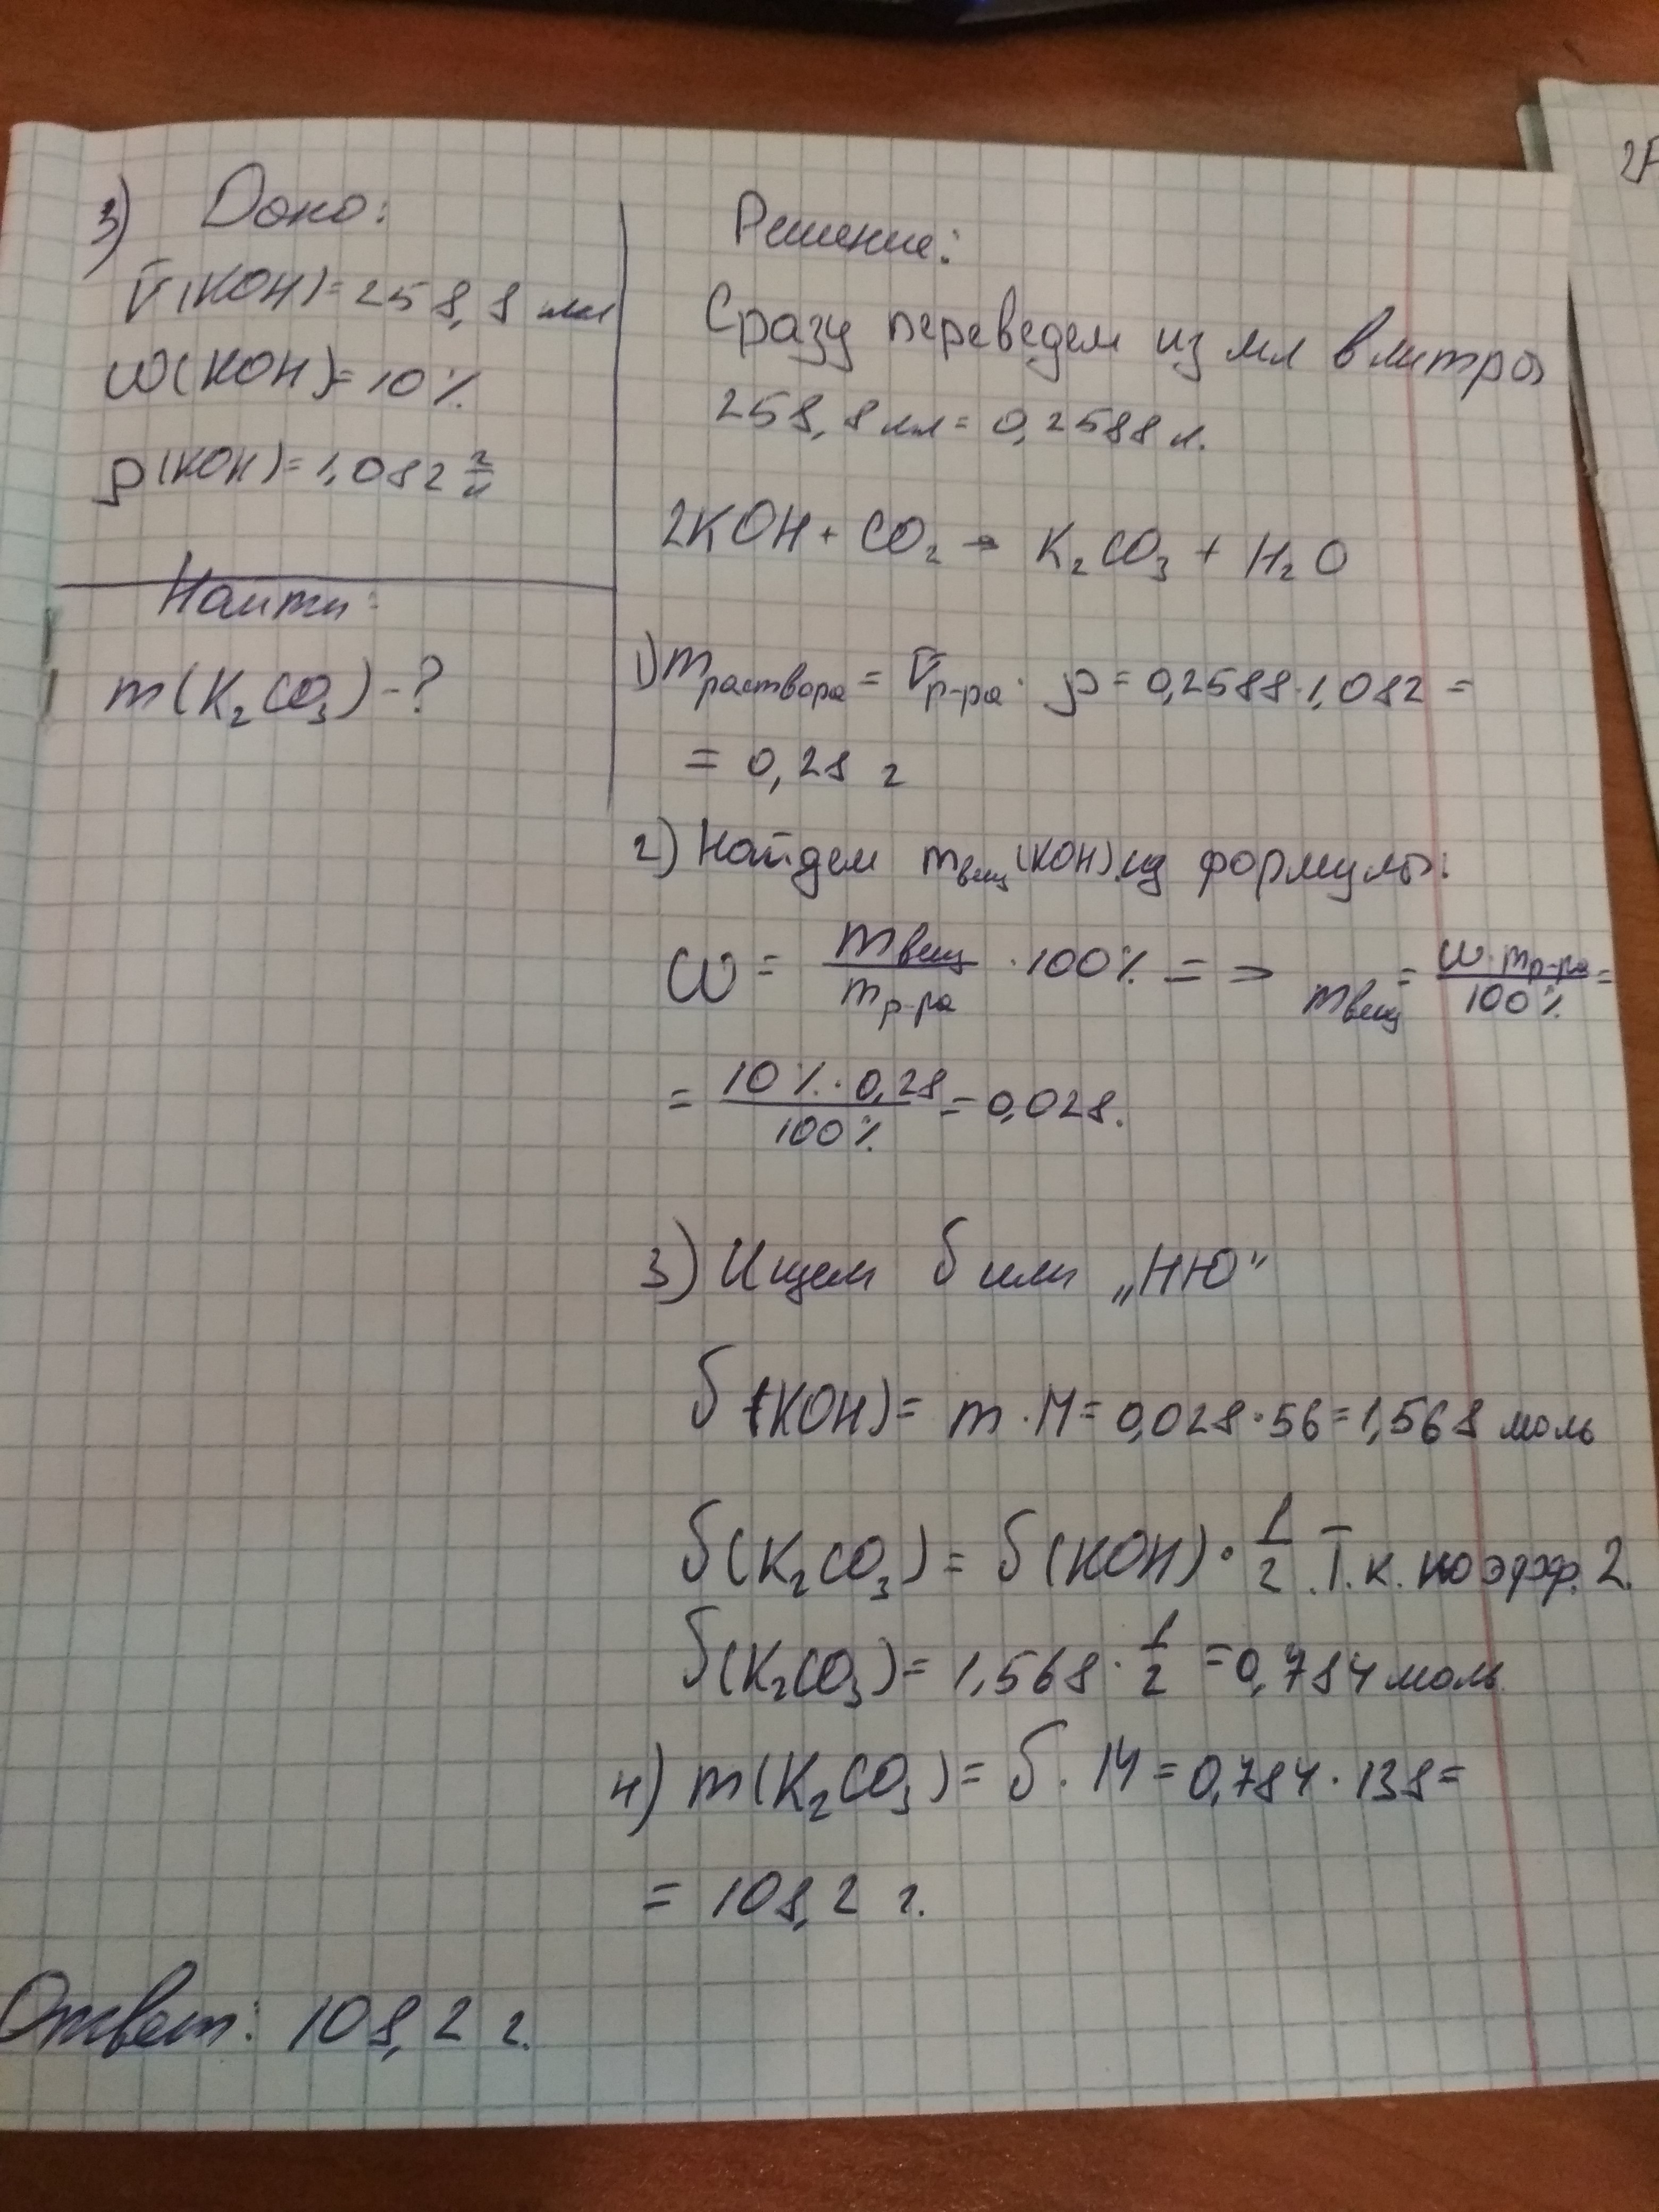 3) Дано:
V(KOH)=258,8 мл
ω(KOH)=10%
ρ(KOH)=1,082 г/л
Найти:
m(K₂CO₃)-?
Решение:
Сразу переведем из мл в литры
258,8 мл = 0,2588 л.
2KOH + CO₂ → K₂CO₃ + H₂O
1) mраствора = Vр-ра · ρ = 0,2588 · 1,082 =
= 0,28 г
2) Найдем mвещ(KOH) из формулы:
ω = mвещ/mр-ра · 100% => mвещ = ω · mр-ра/100% =
= 10% · 0,28/100% = 0,028.
3) Ищем б или „НЮ"
б (KOH) = m · M = 0,028 · 56 = 1,568 моль
б(K₂CO₃) = б(KOH) · 1/2. Т.к. коэфф. 2.
б(K₂CO₃) = 1,568 · 1/2 = 0,784 моль
4) m(K₂CO₃) = б · M = 0,784 · 138 =
= 108,2 г.
Ответ: 108,2 г.